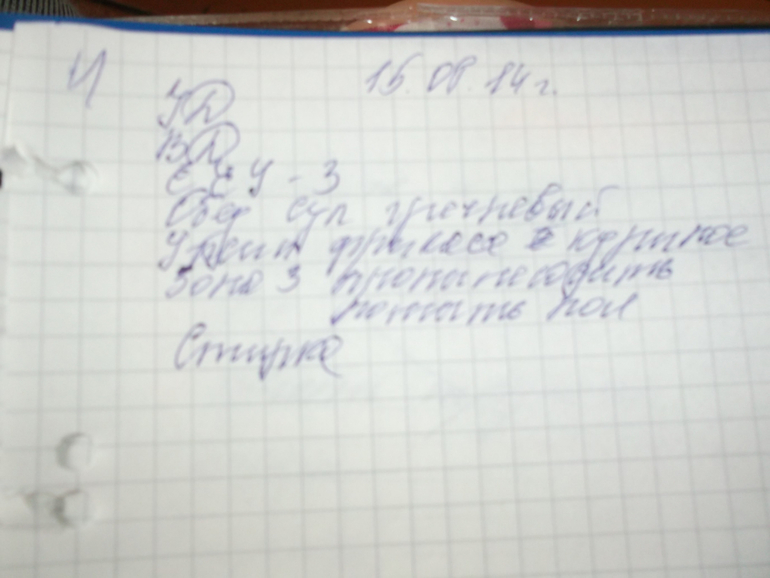 Ч 15.09.14 г.
УД
ВД
ЕСУ - 3
Обед суп гречневый
Ужин фрикасе куриное
Зона 3 пропылесосить
помыть пол
Стирка